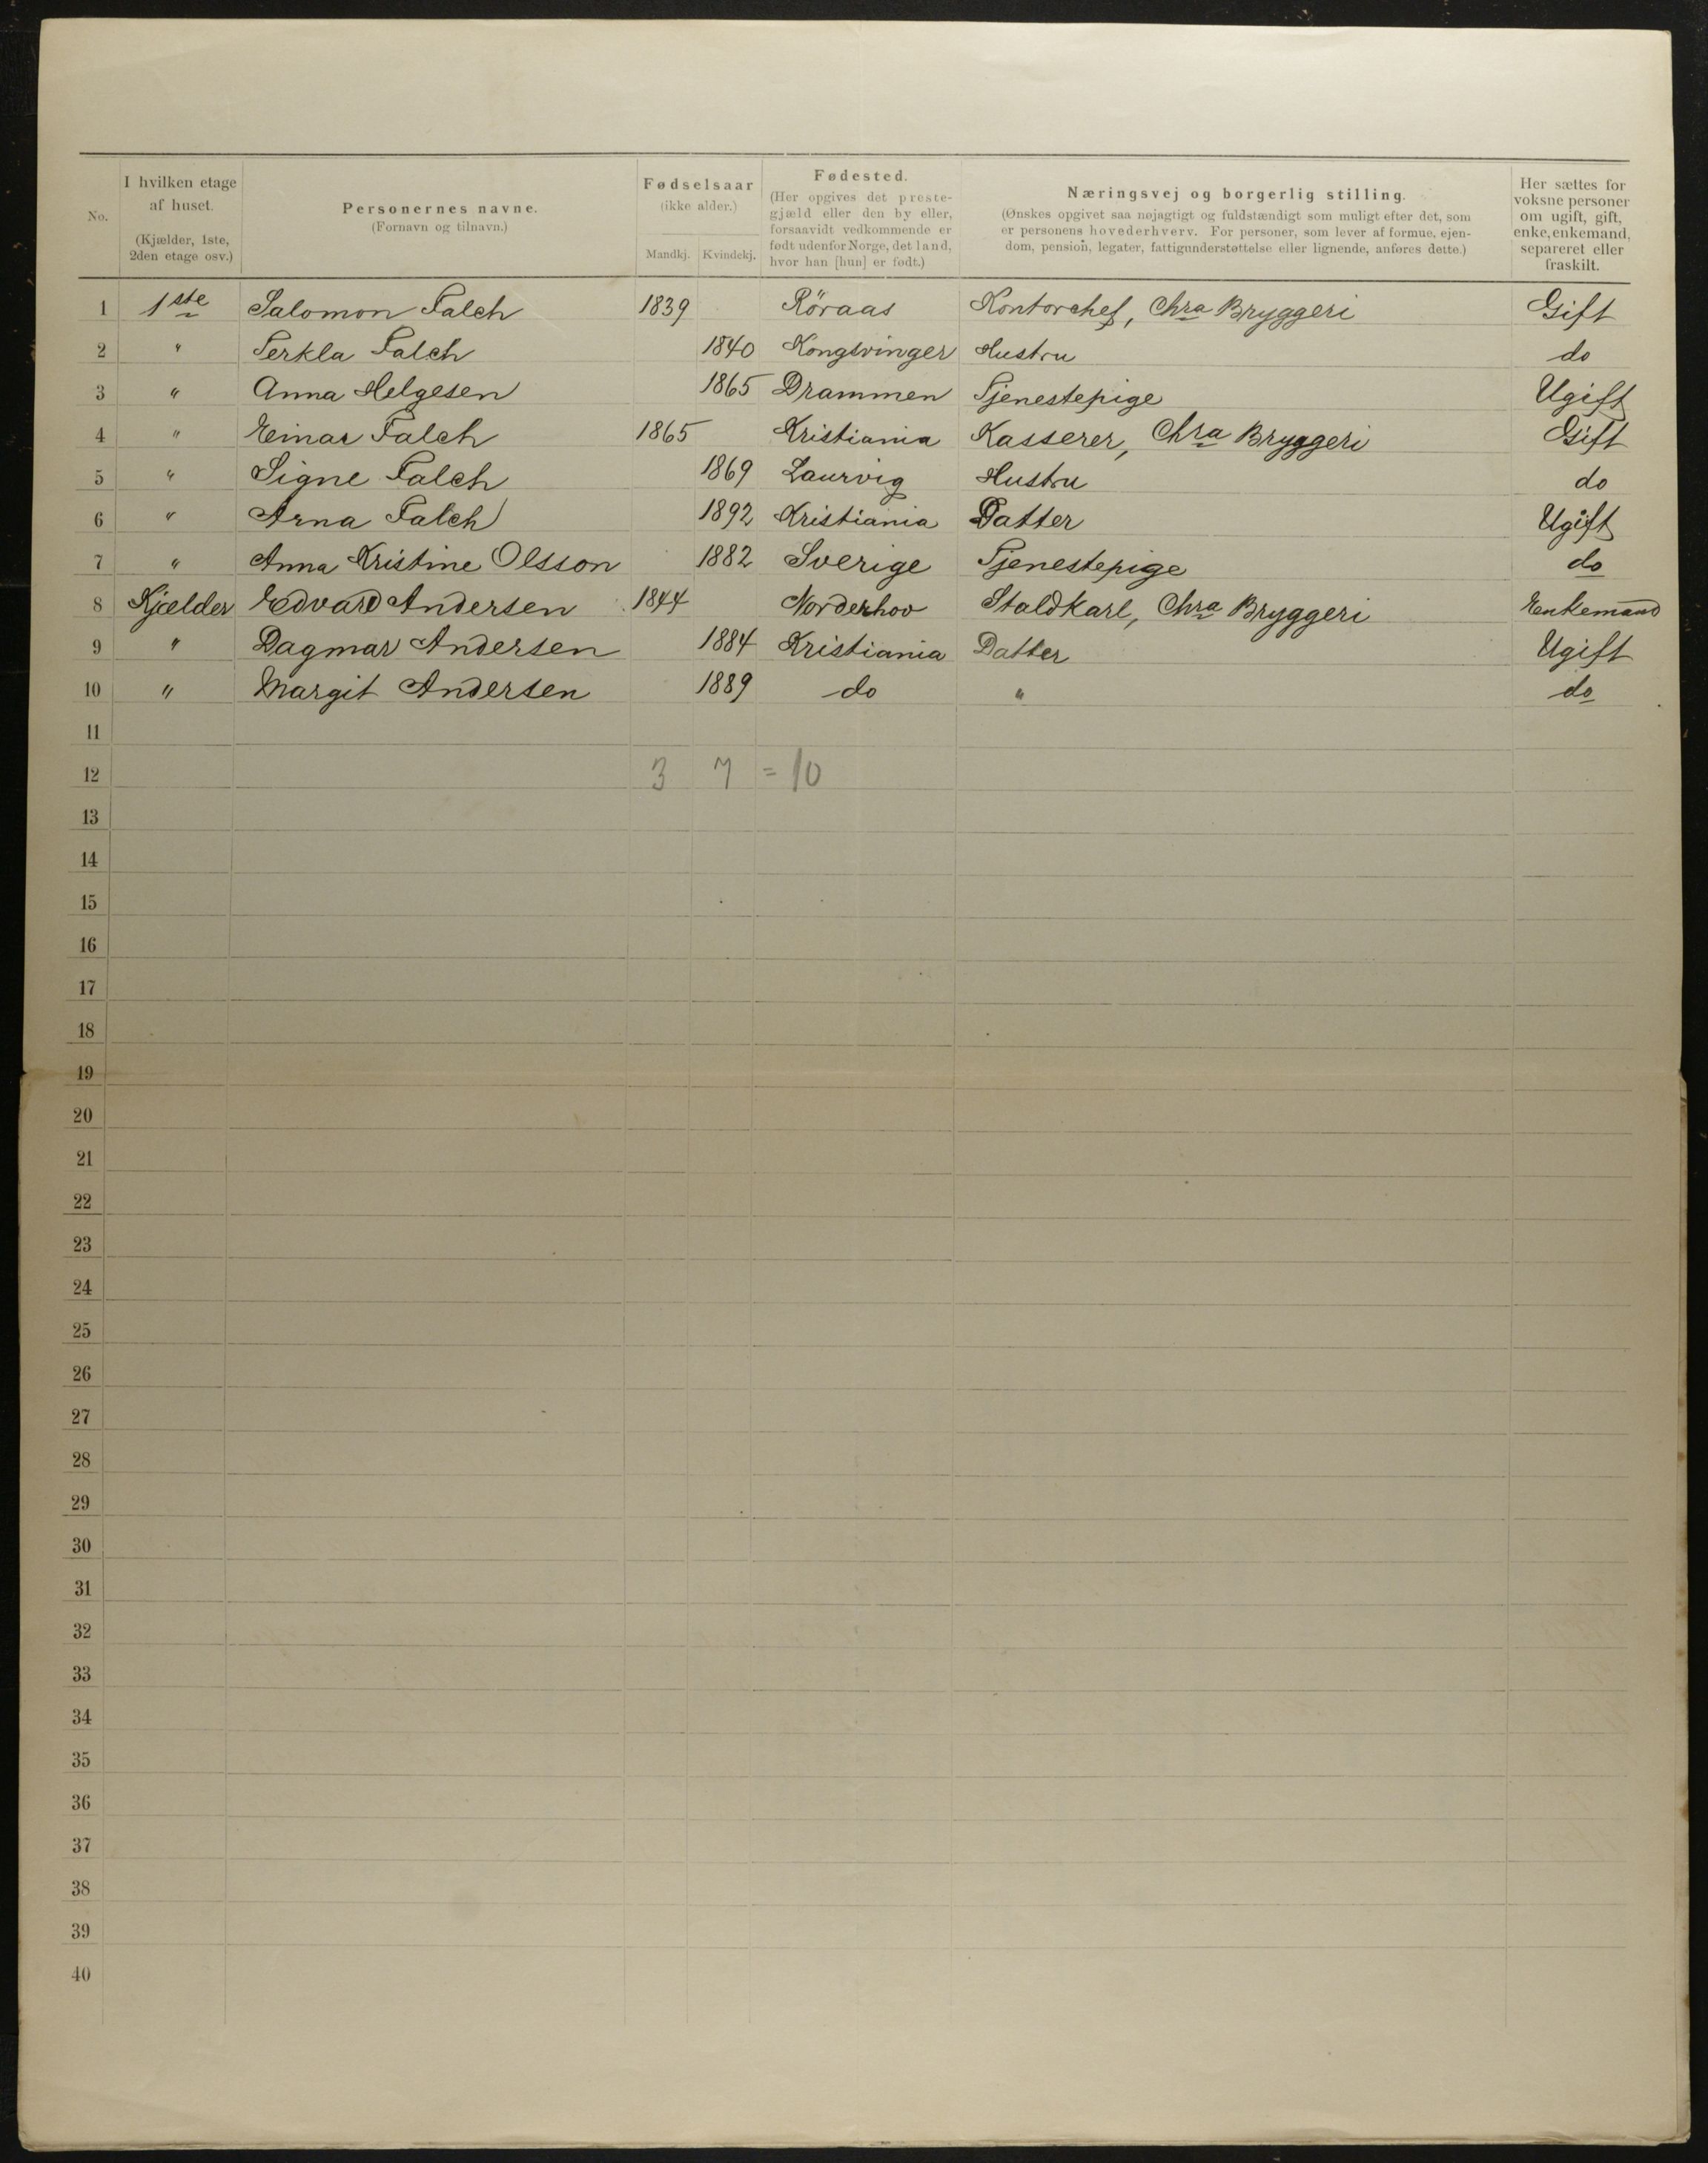 No.
I hvilken etage af huset. (Kjælder, 1ste, 2den etage osv.)
Personernes navne. (Fornavn og tilnavn.)
Fødselsaar (ikke alder.) Mandkj. Kvindekj.
Fødested. (Her opgives det prestegjæld eller den by eller, forsaavidt vedkommende er født udenfor Norge, det land, hvor han [hun] er født.)
Næringsvej og borgerlig stilling. (Ønskes opgivet saa nøjagtigt og fuldstændigt som muligt efter det, som er personens hovederhverv. For personer, som lever af formue, ejendom, pension, legater, fattigunderstøttelse eller lignende, anføres dette.)
Her sættes for voksne personer om ugift, gift, enke, enkemand, separeret eller fraskilt.
1 1ste Salomon Falch 1839 Röraas Kontorchef, Chra Bryggeri Gift
2 " Terkla Falch 1840 Kongsvinger Hustru do
3 " Anna Helgesen 1865 Drammen Tjenestepige Ugift
4 " Einar Falch 1865 Kristiania Kasserer, Chra Bryggeri Gift
5 " Signe Falch 1869 Laurvig Hustru do
6 " Arna Falch 1892 Kristiania Datter Ugift
7 " Anna Kristine Olsson 1882 Sverige Tjenestepige do
8 Kjælder Edvard Andersen 1844 Norderhov Staldkarl, Chra Bryggeri Enkemand
9 " Dagmar Andersen 1884 Kristiania Datter Ugift
10 " Margit Andersen 1889 do " do
11
12 3 7 = 10
13
14
15
16
17
18
19
20
21
22
23
24
25
26
27
28
29
30
31
32
33
34
35
36
37
38
39
40